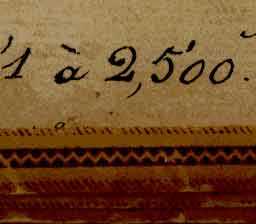 1 à 2,500.